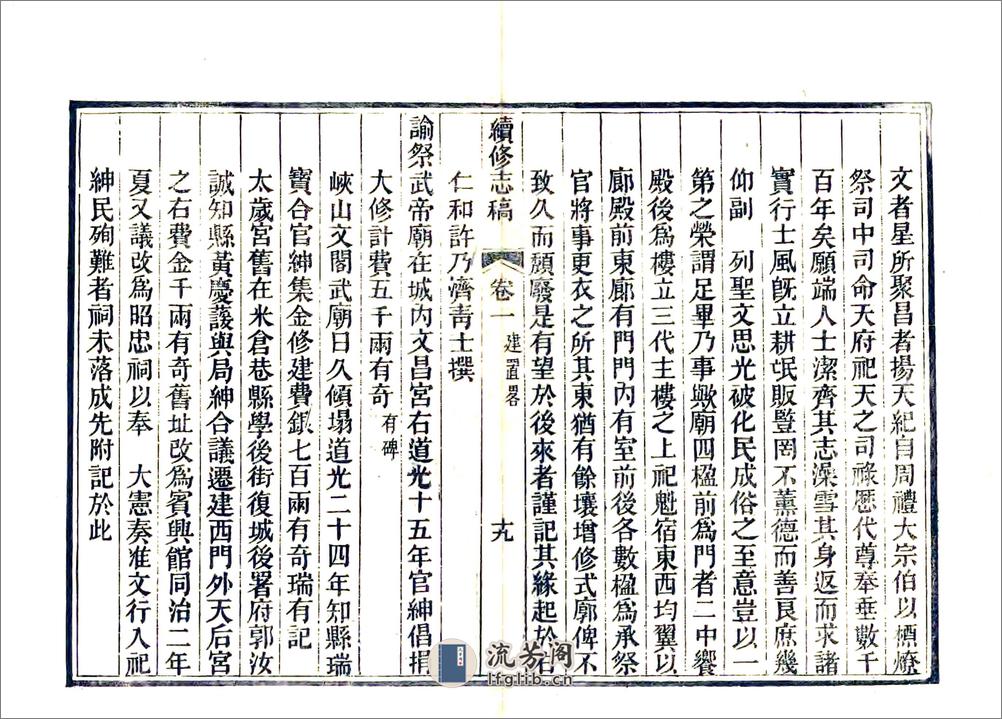 文者星所聚昌者揚天紀自周禮大宗伯以槱燎
祭司中司命天府祀天之司祿歷代尊奉垂數千
百年矣願端人士潔齊其志澡雪其身返而求諸
實行士風旣立耕氓販豎罔不薰德而善良庶幾
仰副　列聖文思光被化民成俗之至意豈以一
第之榮謂足畢乃事歟廟四楹前爲門者二中饗
殿後爲樓立三代主樓之上祀魁宿東西均翼以
廊殿前東廊有門門內有室前後各數楹爲承祭
官將事更衣之所其東猶有餘壤增修式廓俾不
致久而頹廢是有望於後來者謹記其緣起於右
仁和許乃濟靑士撰
續修志稿　卷一　建置畧　十九
諭祭武帝廟在城內文昌宮右道光十五年官紳倡捐
大修計費五千兩有奇有碑
峽山文閣武廟日久傾塌道光二十四年知縣瑞
寶合官紳集金修建費銀七百兩有奇瑞有記
太歲宮舊在米倉巷縣學後街復城後署府郭汝
誠知縣黃慶護與局紳合議遷建西門外天后宮
之右費金千兩有奇舊址改爲賓興館同治二年
夏又議改爲昭忠祠以奉　大憲奏准文行入祀
紳民殉難者祠未落成先附記於此
流芳阁
lfglib.cn